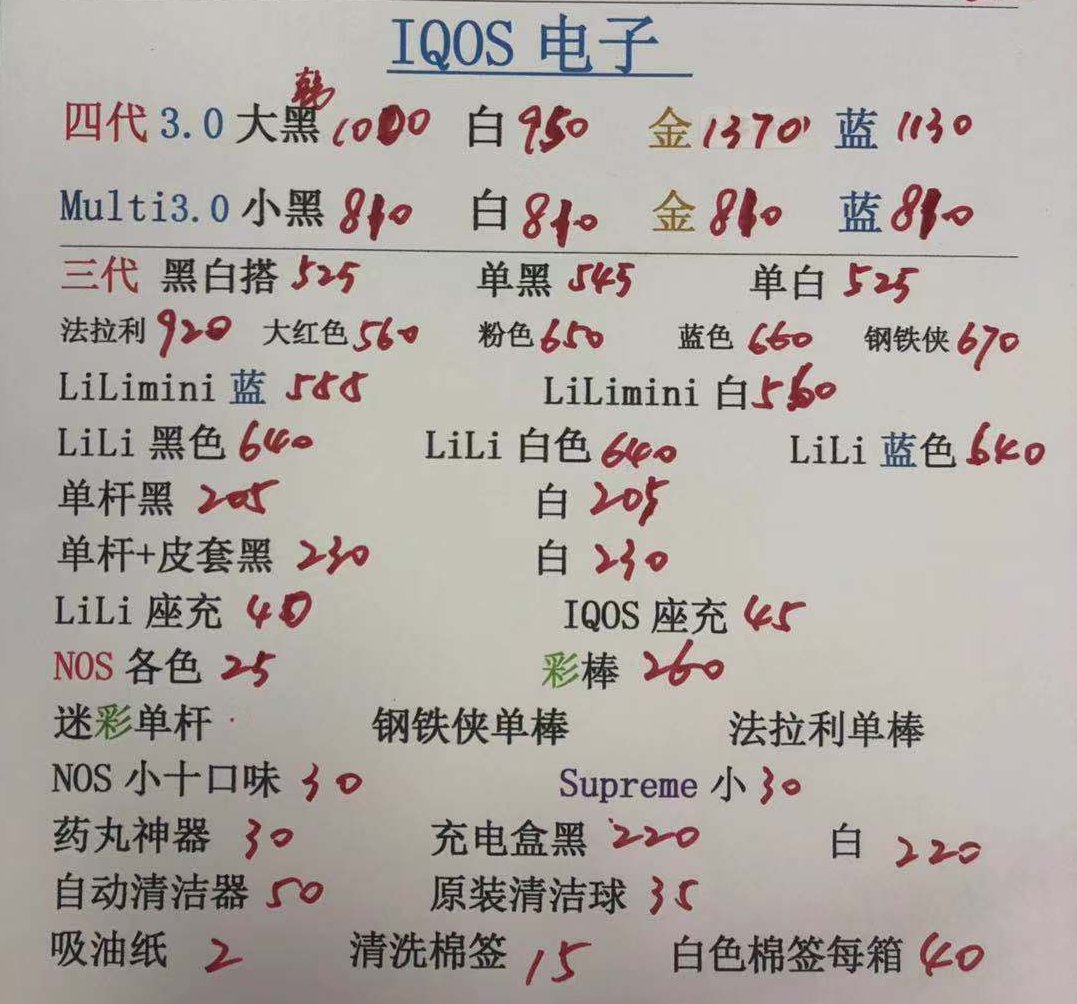 IQOS 电子
韩
四代 3.0 大黑 1000 白 950 金 1370 蓝 1130
Multi3.0 小黑 810 白 810 金 810 蓝 810
三代 黑白搭 525 单黑 545 单白 525
法拉利 920 大红色 560 粉色 650 蓝色 660 钢铁侠 670
LiLimini 蓝 588 LiLimini 白 560
LiLi 黑色 640 LiLi 白色 640 LiLi 蓝色 640
单杆黑 205 白 205
单杆+皮套黑 230 白 230
LiLi 座充 40 IQOS 座充 45
NOS 各色 25 彩棒 260
迷彩单杆 钢铁侠单棒 法拉利单棒
NOS 小十口味 30 Supreme 小 30
药丸神器 30 充电盒黑 220 白 220
自动清洁器 50 原装清洁球 35
吸油纸 2 清洗棉签 15 白色棉签每箱 40